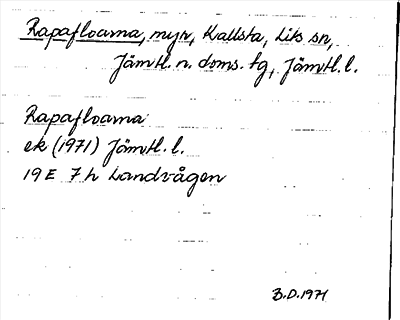 Rapafloarna, myr, Kallsta, Lits sn,
Jämtl. n. doms. tg, Jämtl. l.
Rapafloarna
ek (1971) Jämtl. l.
19E 7h Landvågen
B.D. 1971